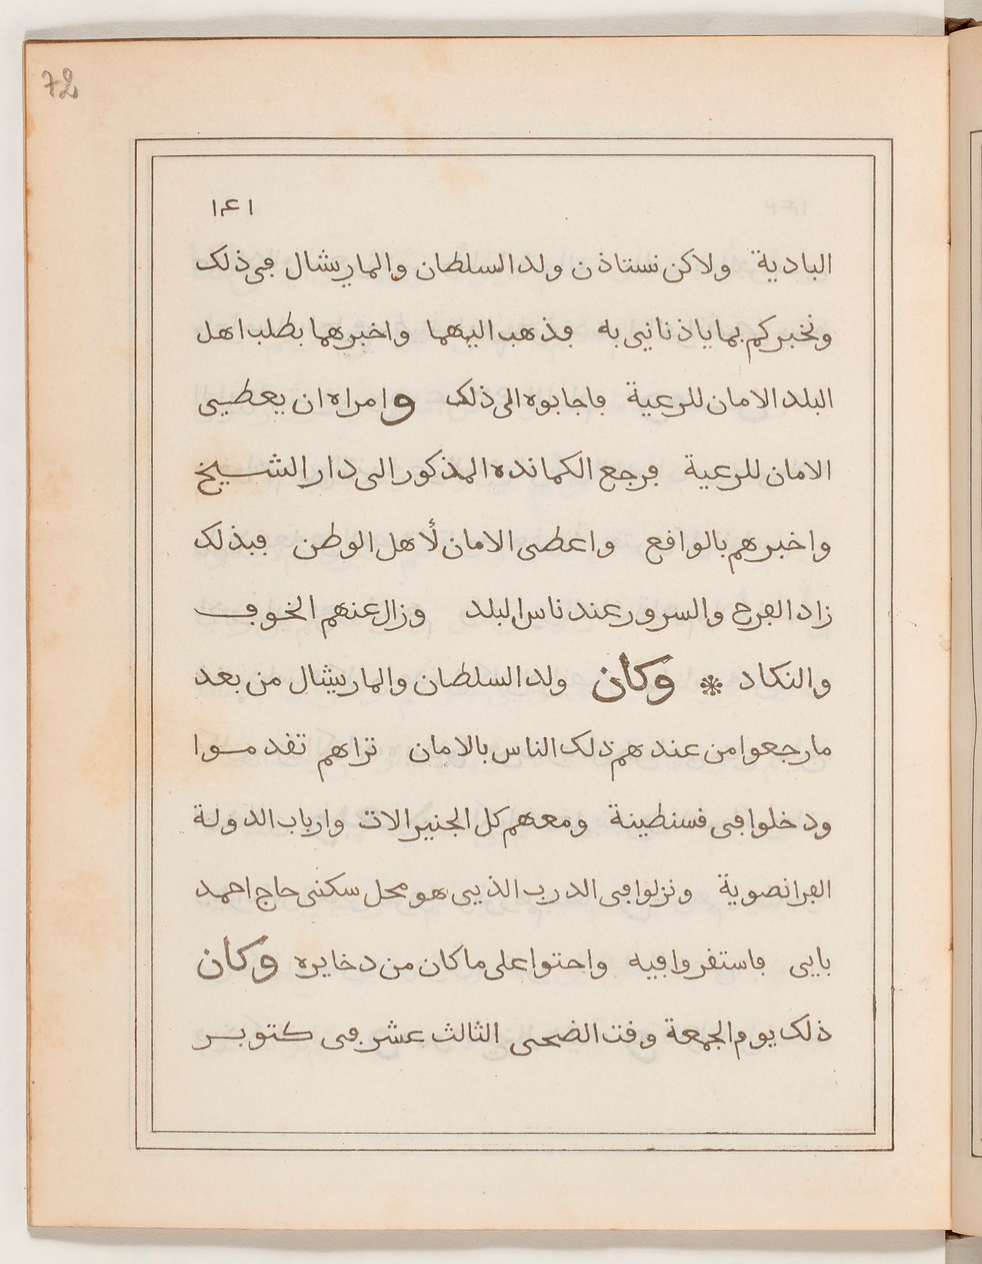 72
١٤١
البادية ولاكن نستاذن ولد السلطان والماريشال في ذلك
ونخبركم بما ياذنانيى به فذهب اليهما واخبرهما بطلب اهل
البلد الامان للرعية فاجابوه الى ذلك وامراه ان يعطيى
الامان للرعية فرجع الكمانده المذكور الى دار الشيخ
واخبرهم بالواقع واعطى الامان لأهل الوطن فبذلك
زاد الفرح والسرور عند ناس البلد وزال عنهم الخوف
والنكاد * وكان ولد السلطان والماريشال من بعد
ما رجعوا من عندهم ذلك الناس بالامان تراهم تقدموا
ودخلوا في قسنطينة ومعهم كل الجنيرالات وارباب الدولة
الفرانصوية ونزلوا في الدرب الذيى هو محل سكنى حاج احمد
بايى فاستقروا فيه واحتوا على ما كان من دخايره وكان
ذلك يوم الجمعة وقت الضحى الثالث عشر في كتوبر